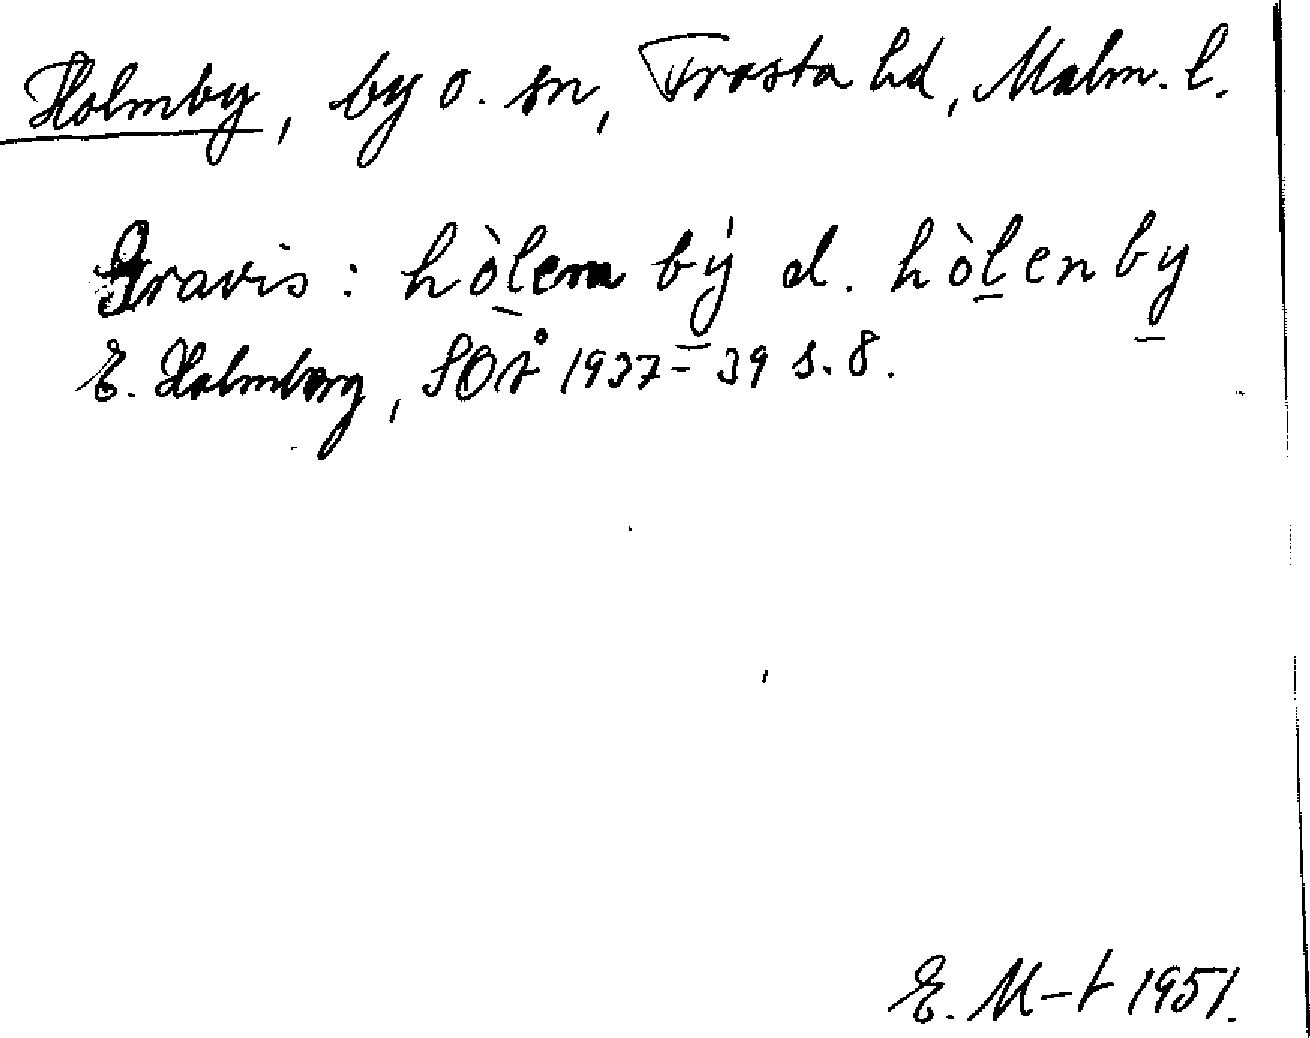 Holmby, by o. sn, Frosta hd, Malm. l.
Gravis: hòlem bý d. hòlenby
E. Holmberg, SOÅ 1937-39 s. 8.
E. M-t 1951.